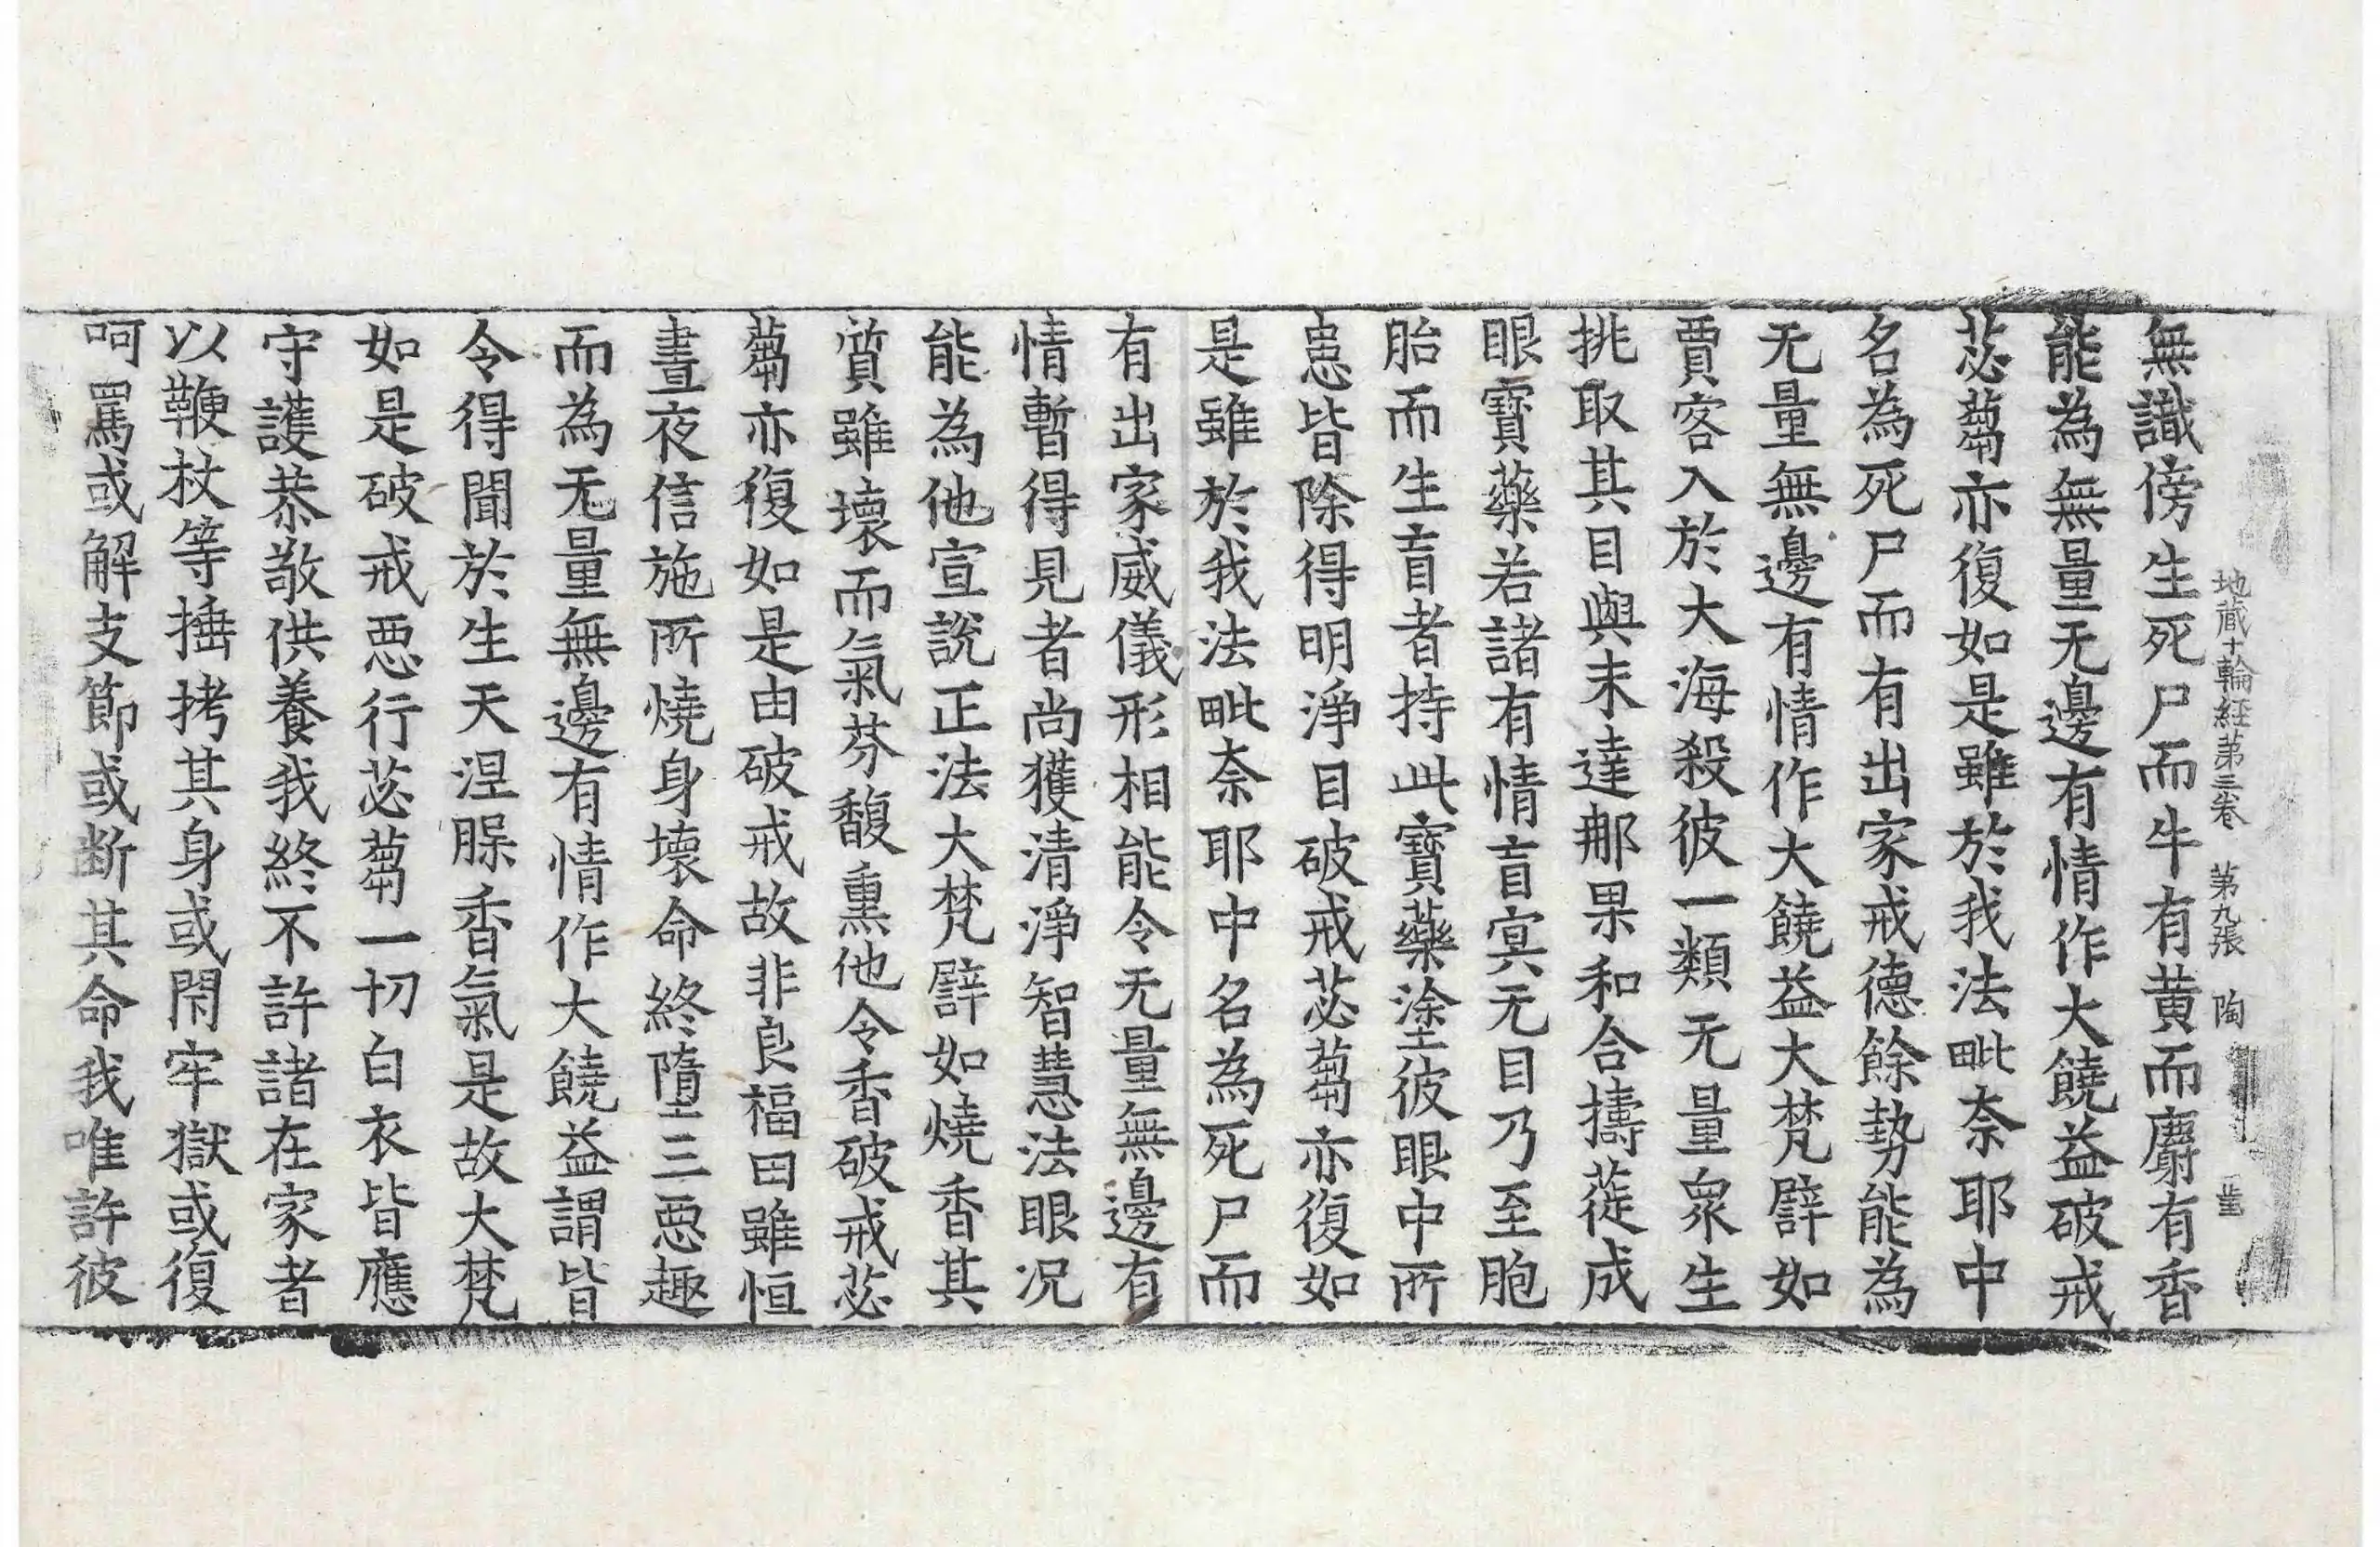 地蔵十輪経第三卷 第九張 陶
無識傍生死尸而牛有黄而麝有香
能為無量无邊有情作大饒益破戒
苾蒭亦復如是雖於我法毗奈耶中
名為死尸而有出家戒德餘勢能為
无量無邊有情作大饒益大梵譬如
賈客入於大海殺彼一類无量衆生
挑取其目與末達那果和合擣蓰成
眼寶藥若諸有情盲冥无目乃至胞
胎而生盲者持此寶藥塗彼眼中所
患皆除得明淨目破戒苾蒭亦復如
是雖於我法毗奈耶中名為死尸而
有出家威儀形相能令无量無邊有
情暫得見者尚獲清淨智慧法眼况
能為他宣說正法大梵譬如燒香其
質雖壞而氣芬馥熏他令香破戒苾
蒭亦復如是由破戒故非良福田雖恒
晝夜信施所燒身壞命終墮三惡趣
而為无量無邊有情作大饒益謂皆
令得聞於生天涅槃香氣是故大梵
如是破戒惡行苾蒭一切白衣皆應
守護恭敬供養我終不許諸在家者
以鞭杖等捶拷其身或閇牢獄或復
呵罵或解支節或斷其命我唯許彼